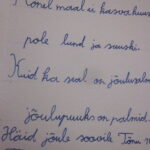 maal ei kasva kuus
pole lund ja suuski.
Kuid ka seal on jõuluvalm
jõulupuuks on palmid.
Häid jõule soovib Tõnu